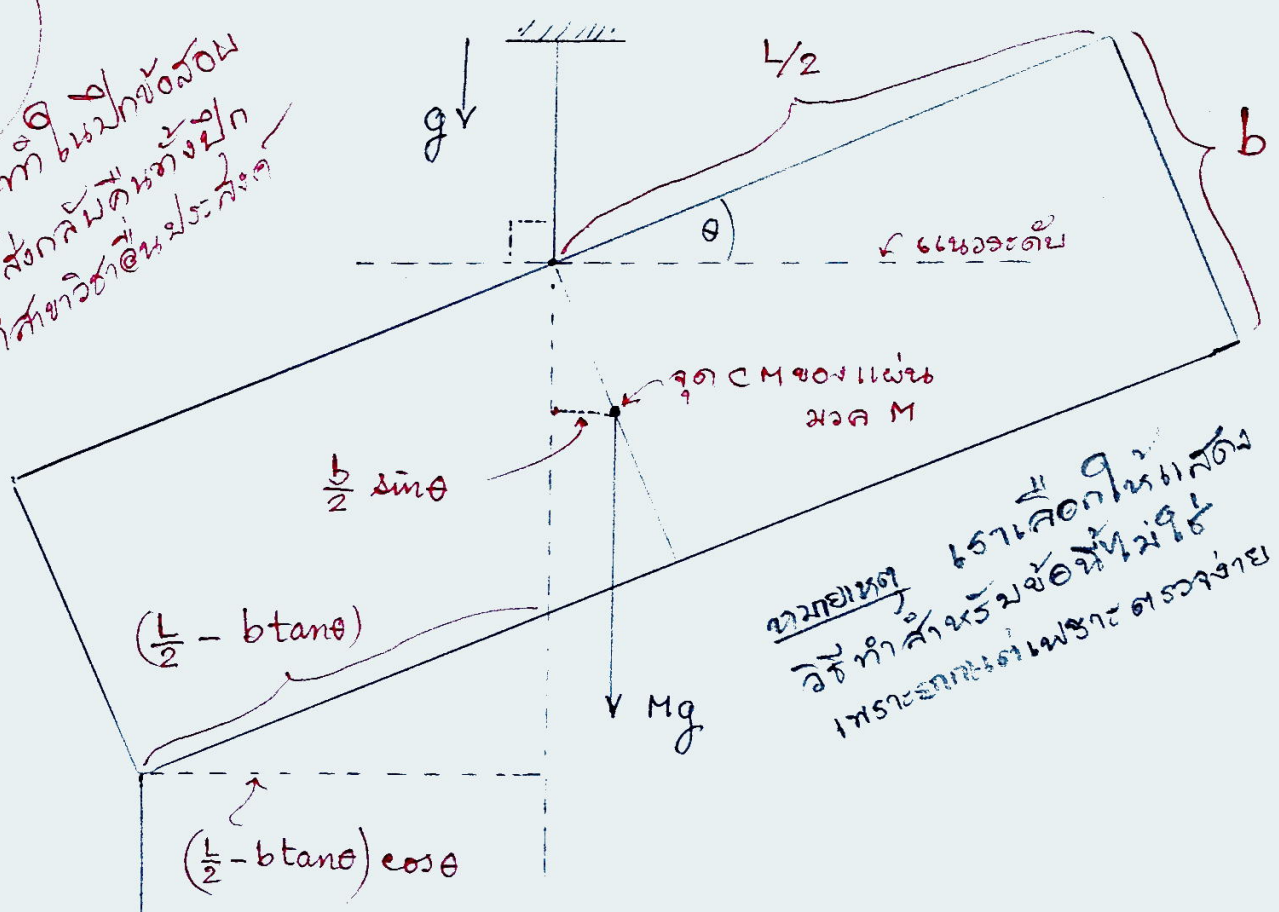 ทำในปีกข้อสอบ
ส่งกลับคืนทั้งปึก
สาขาวิชาอื่นประสงค์
g
L/2
b
θ
แนวระดับ
จุด CM ของแผ่น
มวล M
b/2 sinθ
(L/2 - b tanθ)
Mg
(L/2 - b tanθ) cosθ
หมายเหตุ เราเลือกให้แสดง
วิธีทำสำหรับข้อที่ไม่ใช่
เพราะยากแต่เพราะตรวจง่าย